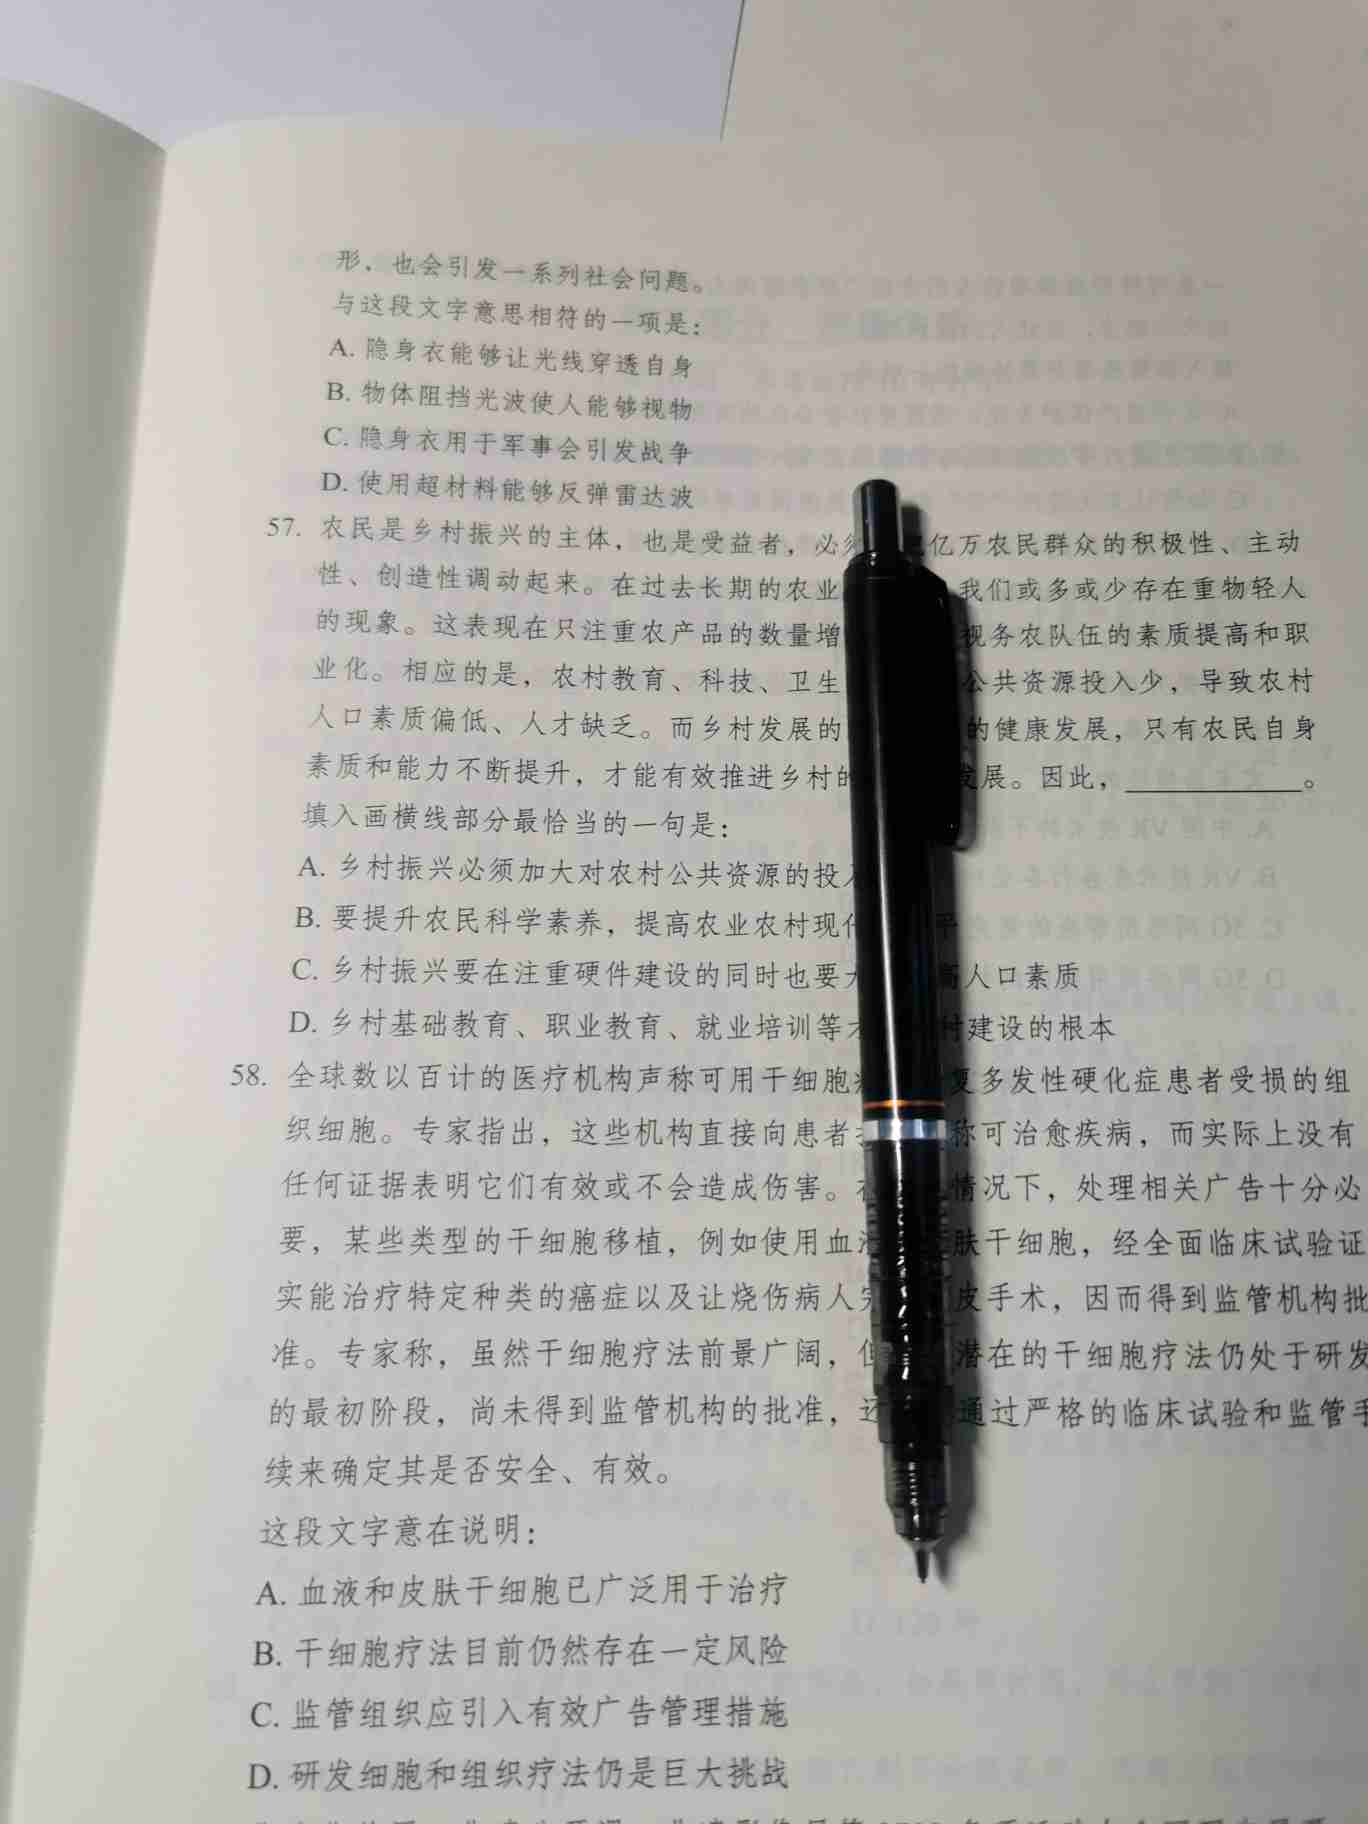 形，也会引发一系列社会问题。
与这段文字意思相符的一项是：
A. 隐身衣能够让光线穿透自身
B. 物体阻挡光波使人能够视物
C. 隐身衣用于军事会引发战争
D. 使用超材料能够反弹雷达波
57. 农民是乡村振兴的主体，也是受益者，必须 亿万农民群众的积极性、主动
性、创造性调动起来。在过去长期的农业 我们或多或少存在重物轻人
的现象。这表现在只注重农产品的数量增 视务农队伍的素质提高和职
业化。相应的是，农村教育、科技、卫生 公共资源投入少，导致农村
人口素质偏低、人才缺乏。而乡村发展的 的健康发展，只有农民自身
素质和能力不断提升，才能有效推进乡村的 发展。因此，____________。
填入画横线部分最恰当的一句是：
A. 乡村振兴必须加大对农村公共资源的投入
B. 要提升农民科学素养，提高农业农村现代 平
C. 乡村振兴要在注重硬件建设的同时也要大 高人口素质
D. 乡村基础教育、职业教育、就业培训等才 村建设的根本
58. 全球数以百计的医疗机构声称可用干细胞 复多发性硬化症患者受损的组
织细胞。专家指出，这些机构直接向患者 称可治愈疾病，而实际上没有
任何证据表明它们有效或不会造成伤害。在 情况下，处理相关广告十分必
要，某些类型的干细胞移植，例如使用血液 肤干细胞，经全面临床试验证
实能治疗特定种类的癌症以及让烧伤病人 皮手术，因而得到监管机构批
准。专家称，虽然干细胞疗法前景广阔，但 潜在的干细胞疗法仍处于研发
的最初阶段，尚未得到监管机构的批准，还 通过严格的临床试验和监管手
续来确定其是否安全、有效。
这段文字意在说明：
A. 血液和皮肤干细胞已广泛用于治疗
B. 干细胞疗法目前仍然存在一定风险
C. 监管组织应引入有效广告管理措施
D. 研发细胞和组织疗法仍是巨大挑战